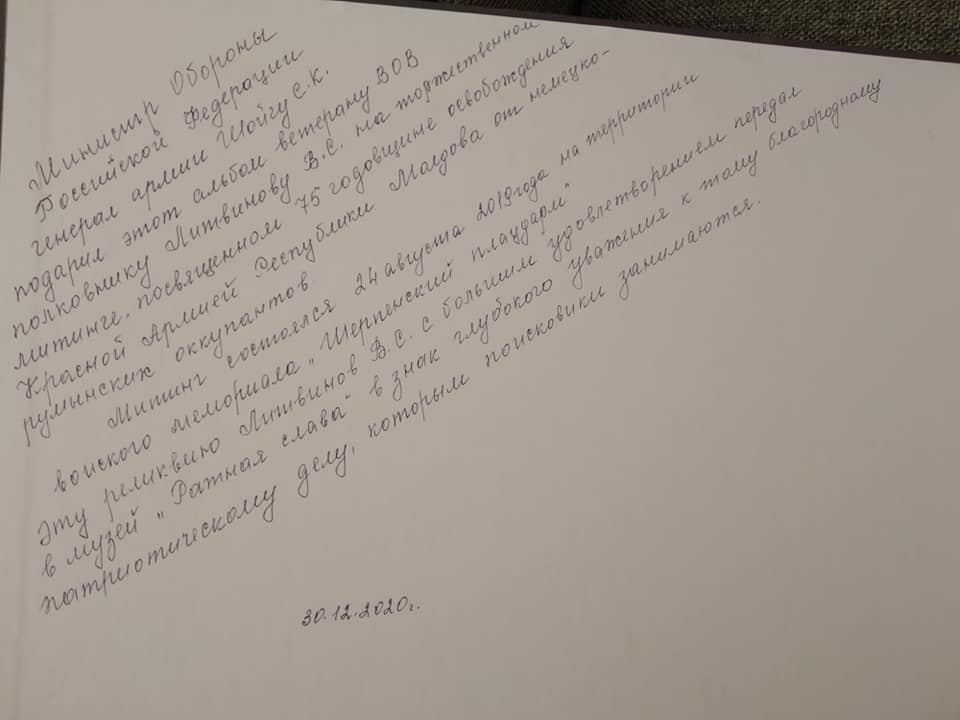 Министр Обороны
Российской Федерации
генерал армии Шойгу С.К.
подарил этот альбом ветерану ВОВ
полковнику Литвинову В.С. на торжественном
митинге, посвященном 75 годовщине освобождения
Красной Армией Республики Молдова от немецко-
румынских оккупантов.
Митинг состоялся 24 августа 2019 года на территории
воиского мемориала „Шерпенский плацдарм"
Эту реликвию Литвинов В.С. с большим удовлетворением передал
в музей „Ратная слава" в знак глубокого уважения к тому благородному
патриотическому делу, которым поисковики занимаются.
30.12.2020г.